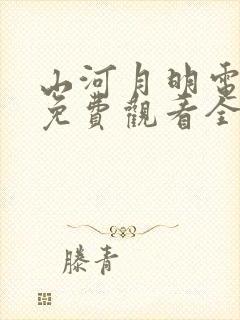 山河月明電
免費觀看全
滕青